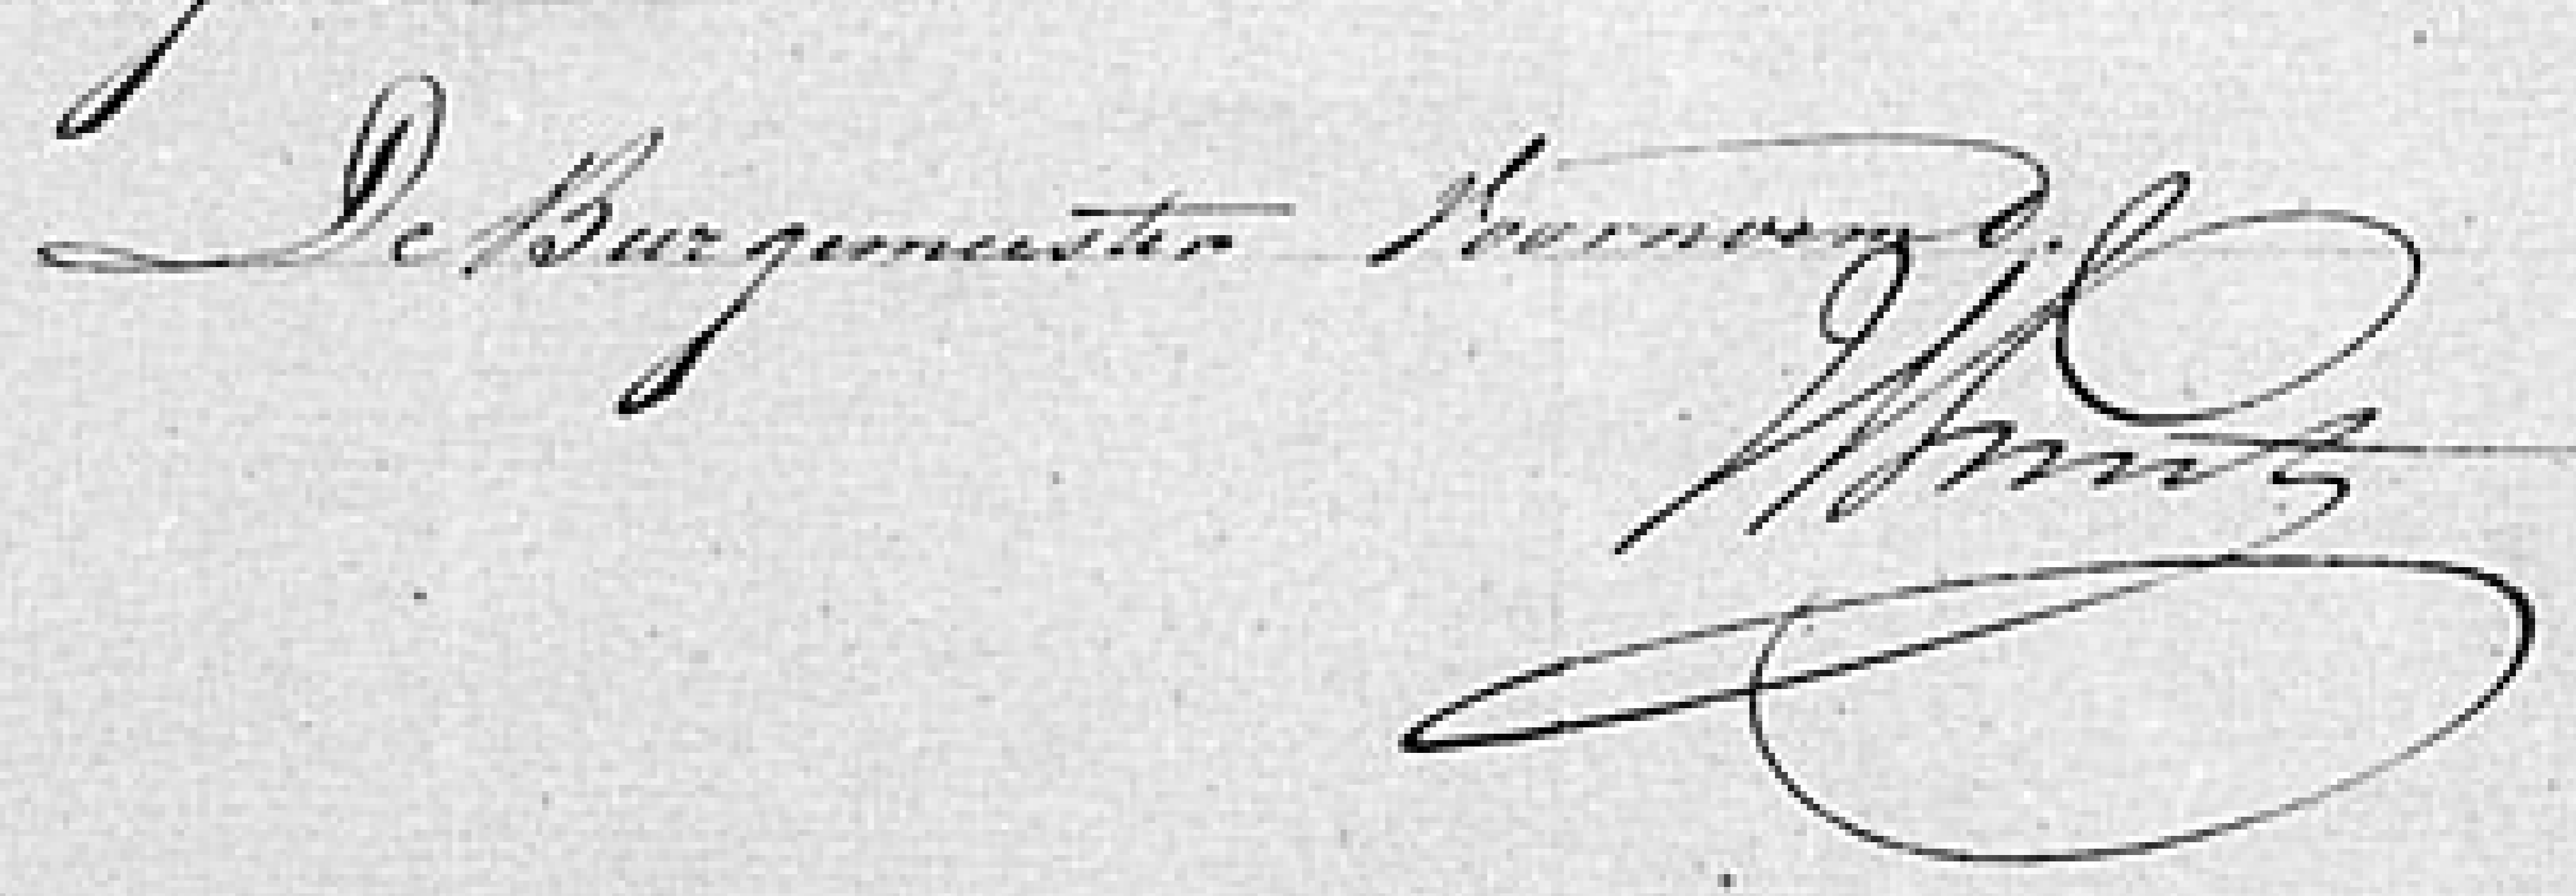 De Burgemeester Voornoemd.
Smits